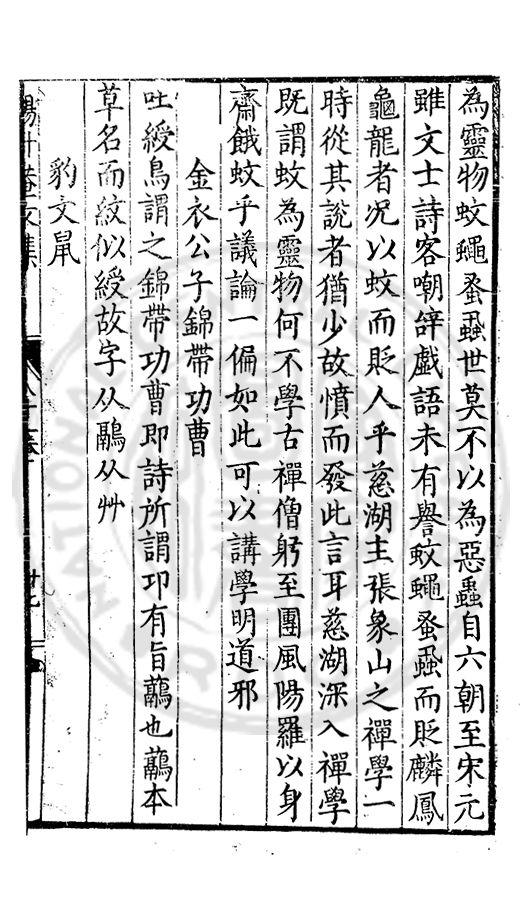 為靈物蚊蠅蚤蝨世莫不以為惡蟲自六朝至宋元
雖文士詩客嘲辞戲語未有譽蚊蠅蚤蝨而貶麟鳳
龜龍者况以蚊而貶人乎慈湖主張象山之禪學一
時從其說者猶少故憤而發此言耳慈湖深入禪學
既謂蚊為靈物何不學古禪僧躬至團風陽羅以身
齋餓蚊乎議論一偏如此可以講學明道邪
金衣公子錦帶功曹
吐綬鳥謂之錦帶功曹即詩所謂卭有旨鷊也鷊本
草名而紋似綬故字从鷊从艸
豹文鼠